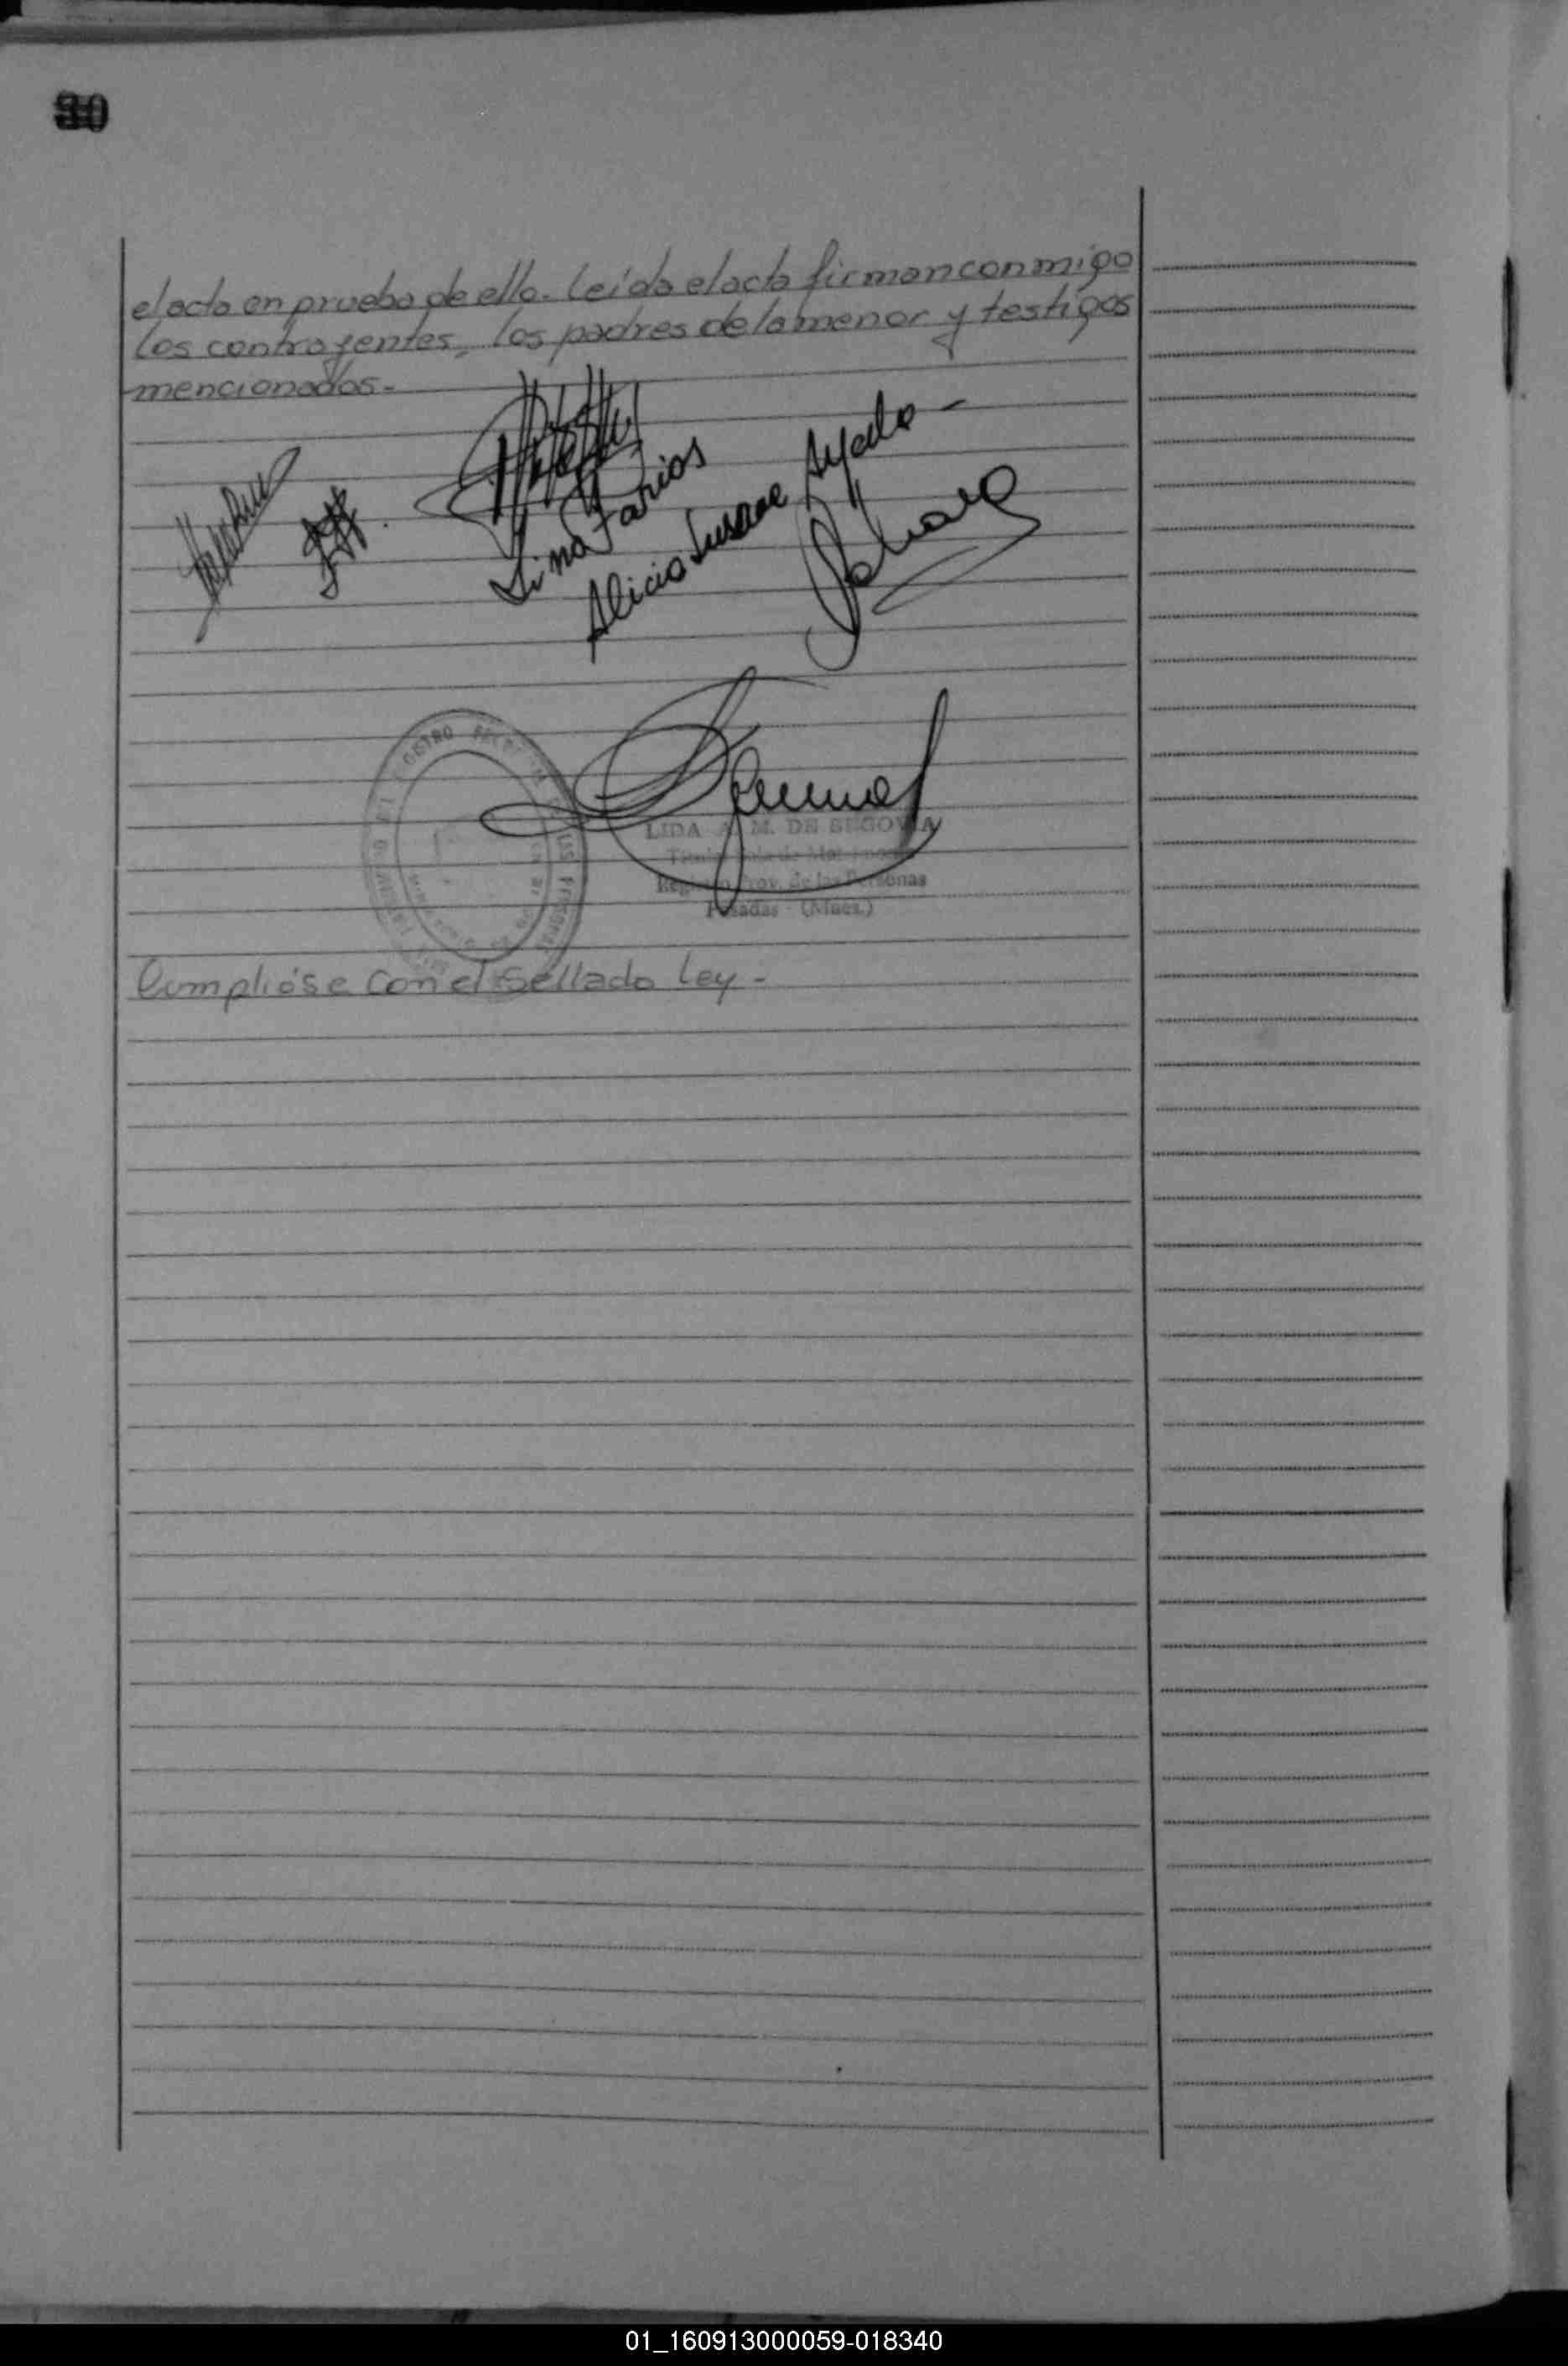 30
el acta en prueba de ello. Leída el acta firman conmigo
los contrayentes, los padres de la menor y testigos
mencionados.-
Lina Farias
Alicia Susana Ayala -
LIDA A. M. DE SEGOVIA
Registro Prov. de las Personas
Posadas - (Mnes.)
Cumplióse con el Sellado Ley -
01_160913000059-018340